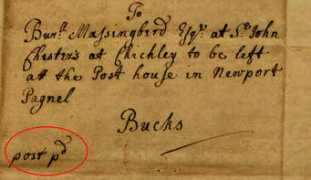 To
Burrl. Massingberd Esqr. at Sr. John
Chester's at Chichley to be left
at the Post house in Newport
Pagnel
Bucks
post pd